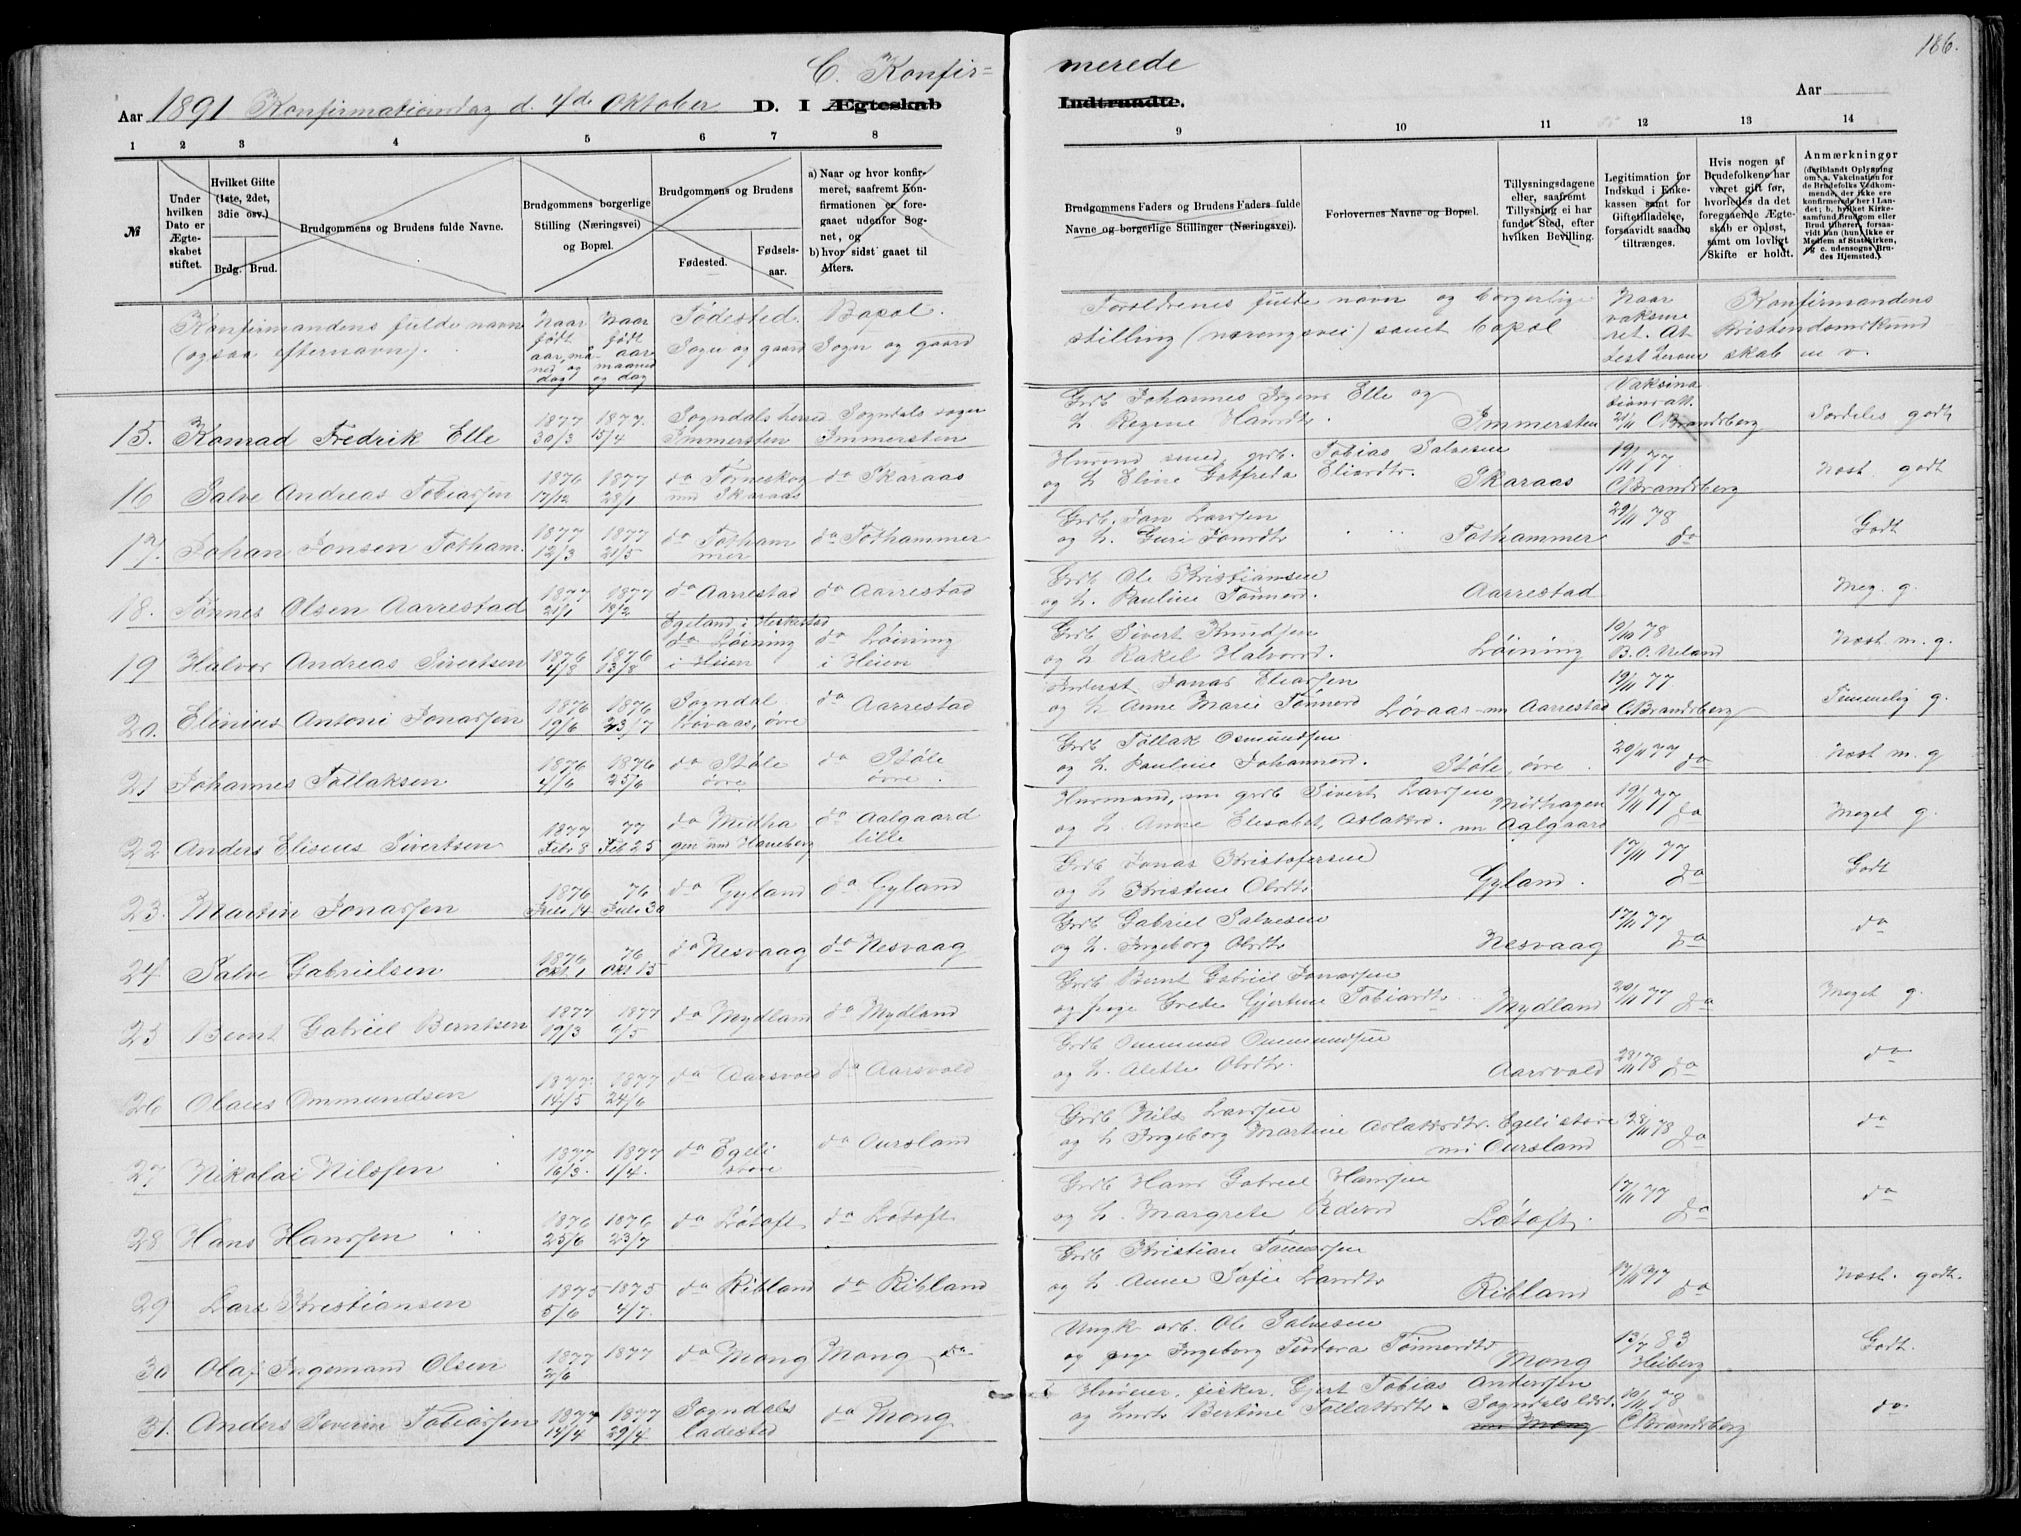 186.
C. Konfir=
merede
Aar 1891 Konfirmationsdag d. 4de Oktober D. I Ægteskab
Indtraadte.
Aar
1 2 3 4 5 6 7 8
9 10 11 12 13 14
№
Under hvilken Dato er Ægteskabet stiftet.
Hvilket Gifte (1ste, 2det, 3die osv.)
Brdg. Brud.
Brudgommens og Brudens fulde Navne.
Brudgommens borgerlige Stilling (Næringsvei) og Bopæl.
Brudgommens og Brudens
Fødested. Fødselsaar.
a) Naar og hvor konfirmeret, saafremt Konfirmationen er foregaaet udenfor Sognet, og
b) hvor sidst gaaet til Alters.
Brudgommens Faders og Brudens Faders fulde Navne og borgerlige Stillinger (Næringsvei).
Forlovernes Navne og Bopæl.
Tillysningsdagene eller, saafremt Tillysning ei har fundet Sted, efter hvilken Bevilling.
Legitimation for Indskud i Enkekassen samt for Giftetilladelse, forsaavidt saadan tiltrænges.
Hvis nogen af Brudefolkene har været gift før, hvorledes da det foregaaende Ægteskab er opløst, samt om lovligt Skifte er holdt.
Anmærkninger
(deriblandt Oplysning om: a. Vakcination for de Brudefolks Vedkommende, der ikke ere konfirmerede her i Landet; b. hvilket Kirkesamfund Brudgom eller Brud tilhører, forsaavidt han (hun) ikke er Medlem af Statskirken, og c. udensogns Brudes Hjemsted.)
Konfirmandens fulde navn (ogsaa efternavn).
Naar født aar, maaned og dag
Naar aar maaned og dag
Fødested. Sogn og gaard
Bopæl. Sogn og gaard
Forældrenes fulde navn og borgerlige stilling (næringsvei) samt bopæl
Naar vaksineret. Attest
Konfirmandens kristendomskundskab m. v.
15. Konrad Fredrik Elle 1877 30/3 1877 15/4 Sogndals herred Immersten Sogndals sogn Immersten
Grdb Johannes Elle og
h. Regine Immersten Vaksinationsatt. 21/11 C Brandsberg Særdeles godt
16 Salve Andreas Tobiassen 1876 17/12 1877 28/1 do Torneskog und Skaraas do Skaraas
Husmd smed, grb. Tobias Salvesen
og h. Eline Gotfreda Eliasdtr. Skaraas 19/11 77 C Brandsberg Næst. godt
17. Johan Jonsen Tothammer 1877 12/3 1877 21/5 do Tothammer do Tothammer
Grdb. Jon Larssen
og h. Guri Jonsdtr Tothammer 29/11 78 do Godt
18. Tønnes Olsen Aarrestad 1877 21/1 1877 18/2 do Aarrestad do Aarrestad
Grdb Ole Kristiansen
og h. Pauline Tønnesd. Aarrestad Meg. g.
19 Halvor Andreas Sivertsen 1876 4/8 1876 13/8 Egeland i Heskestad do Løining i Heien do Løining i Heien
Grdb Sivert Knudsen
og h Rakel Halvorsd. Løining 19/10 78 B. O. Ueland Næst m. g.
20. Elinius Antoni Jonassen 1876 19/6 1876 23/7 Sogndal Løvaas, øvre do Aarrestad
Inderst Jonas Eliassen
og h Anne Marie Tønnesd Løvaas nu Aarrestad 19/11 77 C Brandsberg Temmelig g.
21 Johannes Tollaksen 1876 4/6 1876 25/6 do Støle øvre do Støle øvre
Grdb Tollak Osmundsen
og h. Pauline Johannesd. Støle, øvre 20/11 77 do Næst m. g
22 Anders Eliseus Sivertsen 1877 Febr 8 77 Feb 25 do Midhagen und Haneberg do Aalgaard lille
Husmand, nu grdb Sivert Larssen
og h. Anne Elisabet Aslaksd. Midhagen nu Aalgaard 19/11 77 do Meget g.
23. Martin Jonassen 1876 Juli 14 76 Juli 30 do Gyland do Gyland
Grdb Jonas Kristofersen
og h Kristine Olsdtr Gyland. 17/11 77 do Godt
24. Salve Gabrielsen 1876 Okt. 1 76 Okt 15 do Nesvaag do Nesvaag
Grdb Gabriel Salvesen
og h. Ingeborg Olsdtr Nesvaag 17/11 77 do do
25 Bernt Gabriel Berntsen 1877 19/3 1877 9/5 do Mydland do Mydland
Grdb Bernt Gabriel Jonassen
og pige Grete Gjertine Tobiasdtr Mydland 20/11 77 do Meget g.
26 Olaus Ommundsen 1877 14/5 1877 24/6 do Aarsvold do Aarsvold
Grdb Ommund Ommundsen
og h. Alette Olsdtr. Aarsvold 28/11 78 do do
27 Nikolai Nilssen 1877 16/3. 1877 1/4. do Egeli store do Oursland
Grdb Nils Larssen
og h Ingeborg Martine Aslaksdtr. Egeli store nu Oursland 28/11 78 do do
28 Hans Hanssen 1876 25/6 1876 23/7 do Løtoft do Løtoft
Grdb Hans Gabriel Hanssen
og h. Margrete Pedersd Løtoft. 17/11 77 do do
29 Lars Kristiansen 1875 5/6 1875 4/7. do Ribland do Ribland
Grdb Kristian Tønnessen
og h Anne Sofie Larsdtr Ribland 17/11 77 do Næst. godt.
30 Olaf Ingemand Olsen 1877 2/6 1877 do Mong Mong do
Ungk. arb. Ole Salvesen
og pige Ingeborg Teodora Tønnesdtr Mong 13/7 83 Heiberg Godt.
31. Anders Severin Tobiassen 1877 14/4 1877 29/4 Sogndals ladested do Mong
Huseier, fisker, Gjert Tobias Andersen
og hustr Bertine Tollaksdtr. Sogndals ldst. nu Mong 10/11 78 C Brandsberg do